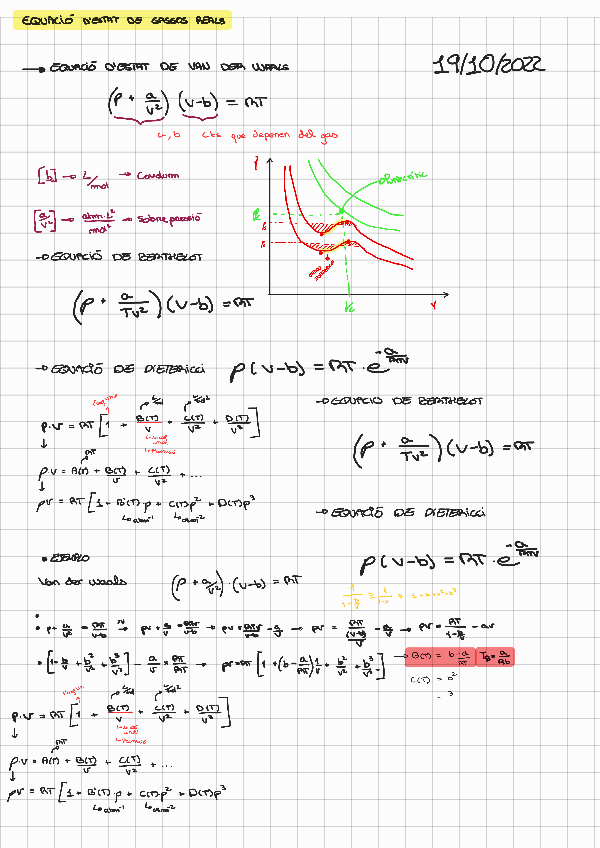 EQUACIÓ D'ESTAT DE GASSOS REALS
19/10/2022
→ EQUACIÓ D'ESTAT DE VAN DER WAALS
(P + a/v²) (v-b) = RT
a, b ctes que depenen del gas
[b] → L/mol → Covolum
[a/v²] → atm·L²/mol² → Sobrepressió
P
Pc
Vc
V
→ EQUACIÓ DE BERTHELOT
(P + a/Tv²) (v-b) = RT
→ EQUACIÓ DE DIETERICCI p(v-b) = RT · e^(-a/RTv)
p·v = RT [1 + B(T)/v + C(T)/v² + D(T)/v³]
p·v = A(T) + B(T)/v + C(T)/v² + ...
RT
pv = RT [1 + B'(T)·p + C(T)p² + D(T)p³
atm⁻¹ atm⁻²
→ EQUACIÓ DE BERTHELOT
(P + a/Tv²) (v-b) = RT
→ EQUACIÓ DE DIETERICCI
p(v-b) = RT · e^(-a/RTv)
• EJEMPLO
Van der Waals (P + a/v²) · (v-b) = RT
• p + a/v² = RT/v-b → pv + a/v = RTv/v-b → pv = RTv/v-b - a/v → pv = RT/(v-b)/v - a/v → pv = RT/1-b/v - a/v
→ pv = RT [1 + (b - a/RT) 1/v + b²/v² + b³/v³]
→ B(T) = b - a/RT TB = a/Rb
C(T) = b²
p·v = RT [1 + B(T)/v + C(T)/v² + D(T)/v³]
p·v = A(T) + B(T)/v + C(T)/v² + ...
RT
pv = RT [1 + B'(T)·p + C(T)p² + D(T)p³
atm⁻¹ atm⁻²